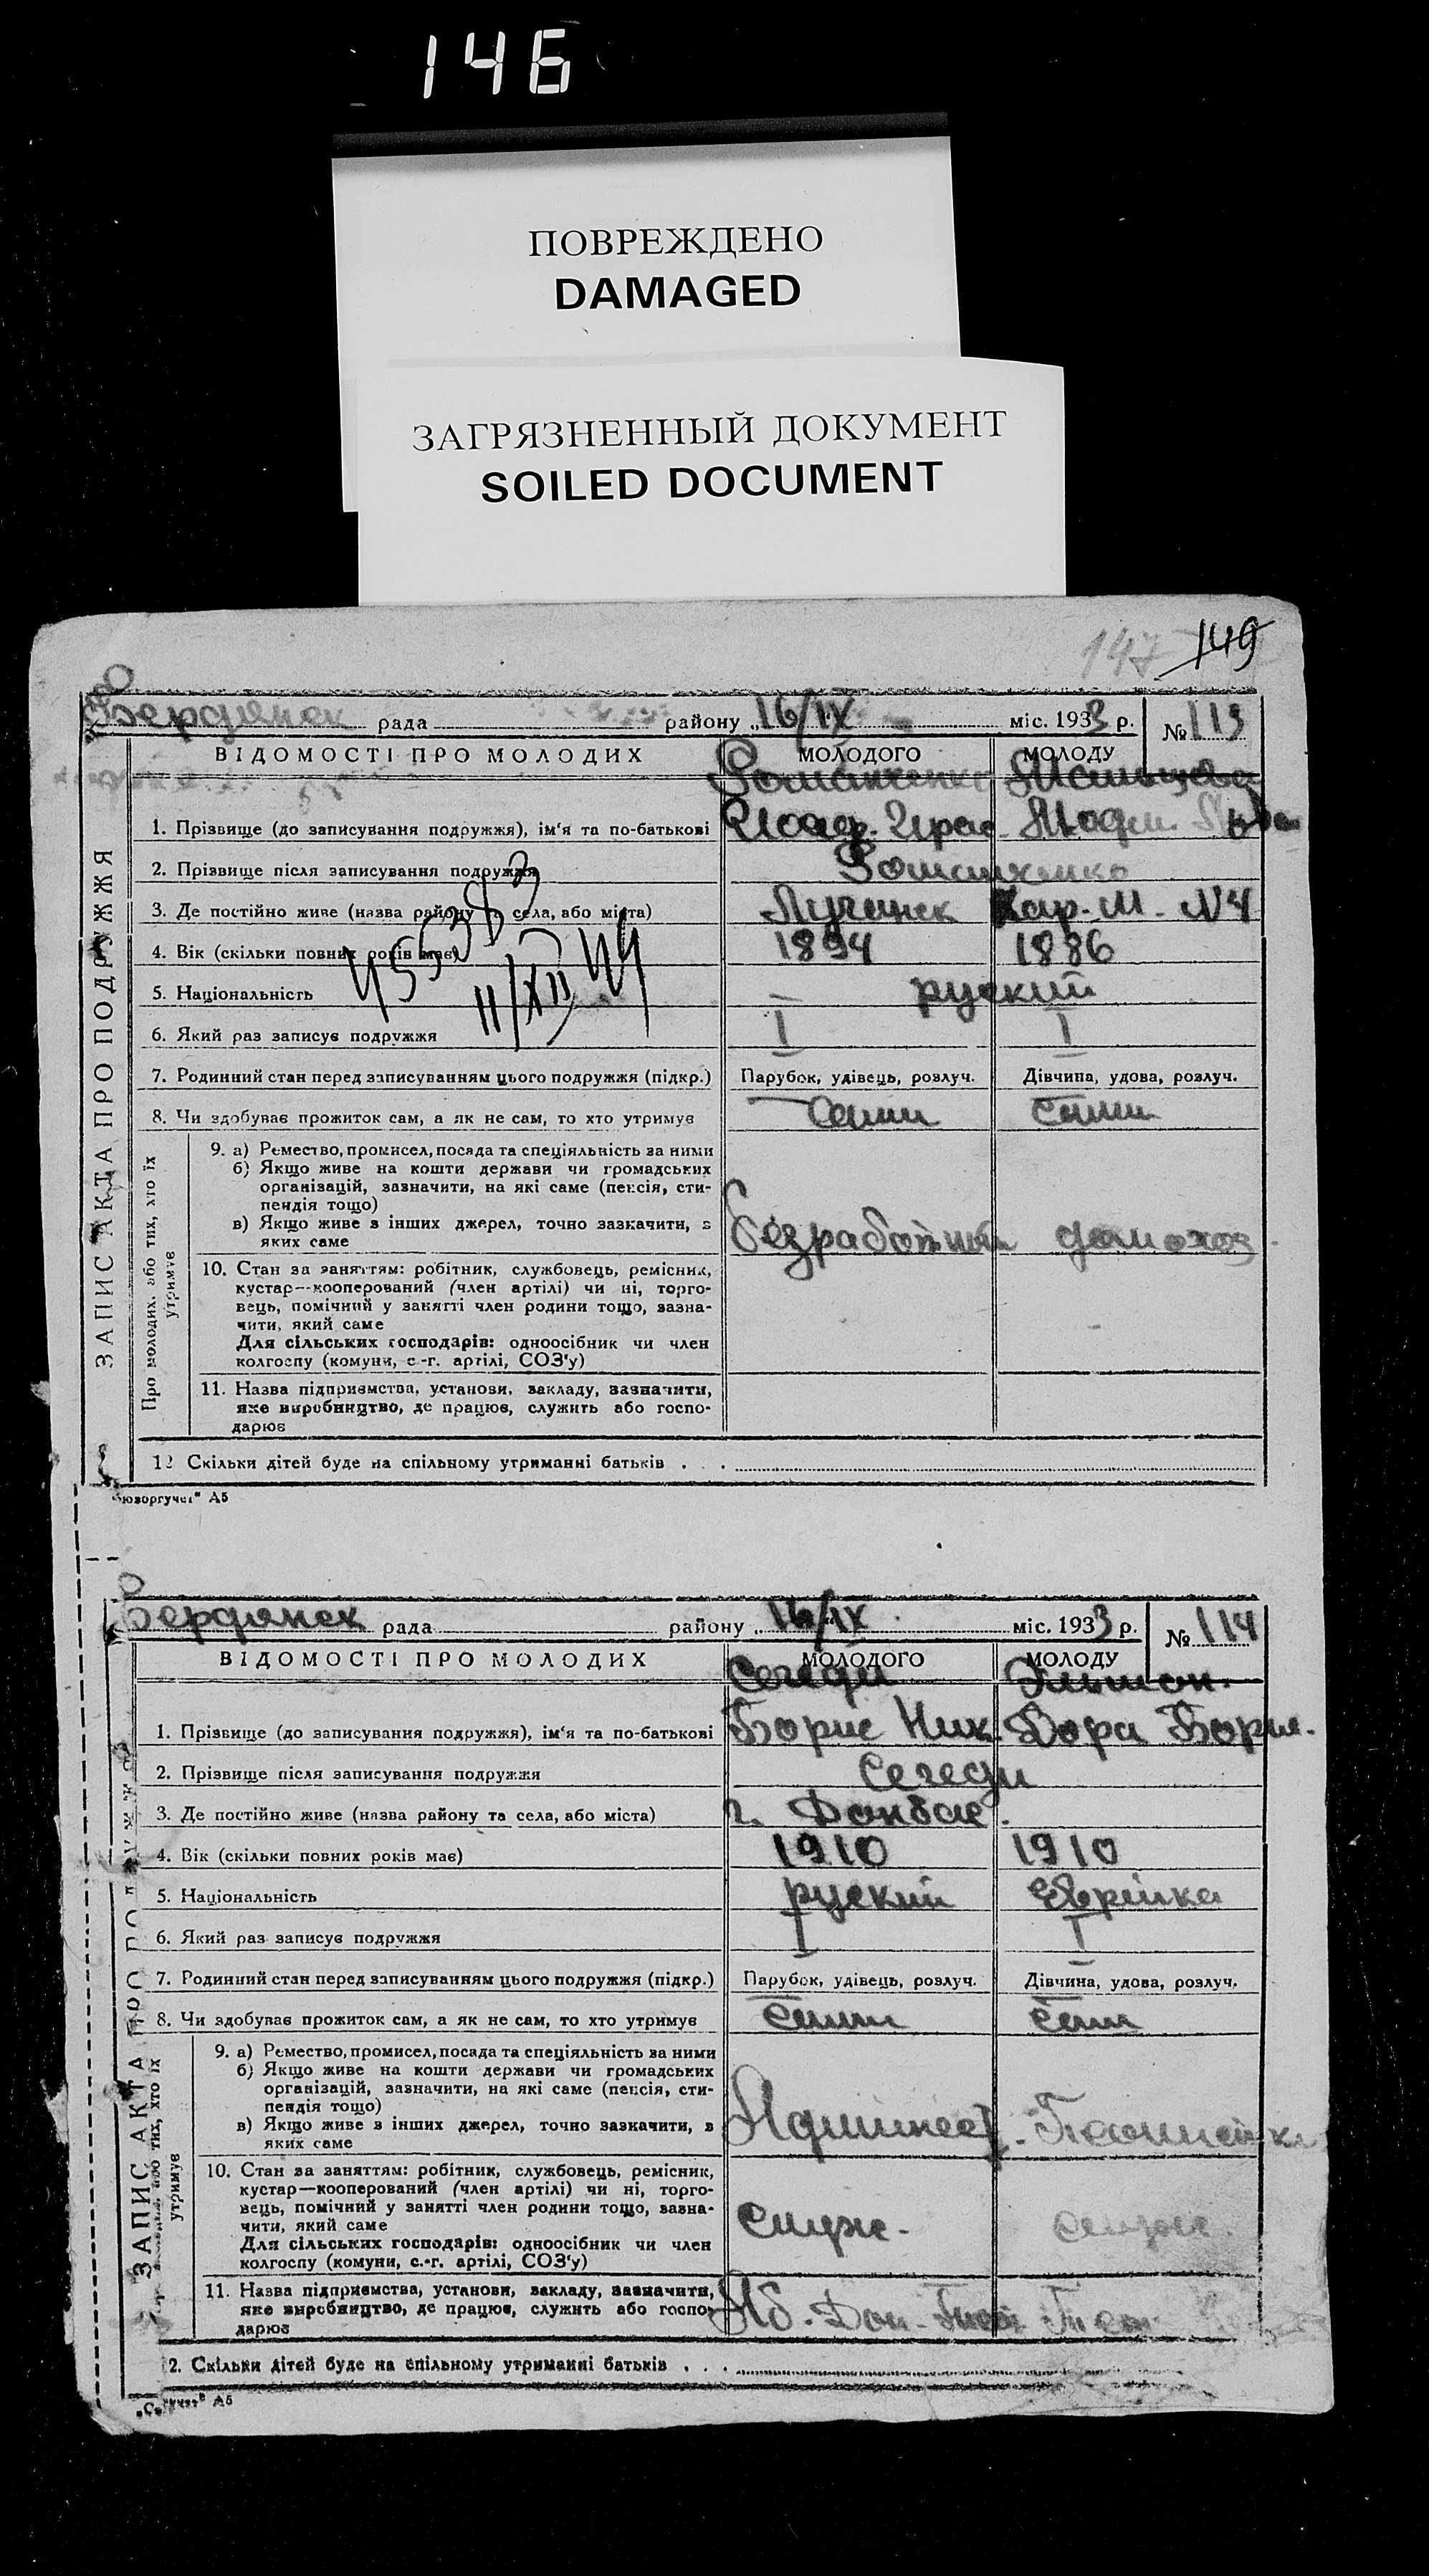 146
ПОВРЕЖДЕНО
DAMAGED
ЗАГРЯЗНЕННЫЙ ДОКУМЕНТ
SOILED DOCUMENT
147 149
Бердянск рада району „ 16/IX міс. 1933 р. № 113
ВІДОМОСТІ ПРО МОЛОДИХ МОЛОДОГО МОЛОДУ
Романченко
1. Прізвище (до записування подружжя), ім'я та по-батькові
2. Прізвище після записування подружжя Романченко
3. Де постійно живе (назва району та села, або міста) Луганск Кар. М. N4
4. Вік (скільки повних років має) 1894 1886
45538 3
11/XII 44
5. Національність руский
6. Який раз записує подружжя I I
7. Родинний стан перед записуванням цього подружжя (підкр.) Парубок, удівець, розлуч. Дівчина, удова, розлуч.
8. Чи здобуває прожиток сам, а як не сам, то хто утримує Сами сами
ЗАПИС АКТА ПРО ПОДРУЖЖЯ
Про молодих, або тих, хто їх утримує
9. а) Ремество, промисел, посада та спеціяльність за ними
б) Якщо живе на кошти держави чи громадських
організацій, зазначити, на які саме (пенсія, сти-
пендія тощо)
в) Якщо живе з інших джерел, точно зазначити, з
яких саме безработный домохоз.
10. Стан за заняттям: робітник, службовець, ремісник,
кустар—кооперований (член артілі) чи ні, торго-
вець, помічний у занятті член родини тощо, зазна-
чити, який саме
Для сільських господарів: одноосібник чи член
колгоспу (комуни, с.-г. артілі, СОЗ'у)
11. Назва підприємства, установи, закладу, зазначити,
яке виробництво, де працює, служить або госпо-
дарює
12 Скільки дітей буде на спільному утриманні батьків . . .
"Союзоргучет" А5
Бердянск рада району „ 16/IX міс. 1933 р. № 114
ВІДОМОСТІ ПРО МОЛОДИХ МОЛОДОГО МОЛОДУ
Сегеди
1. Прізвище (до записування подружжя), ім'я та по-батькові Борис Ник. Дора Борис.
2. Прізвище після записування подружжя Сегеди
3. Де постійно живе (назва району та села, або міста) г. Донбас.
4. Вік (скільки повних років має) 1910 1910
5. Національність руский еврейка
6. Який раз записує подружжя I I
7. Родинний стан перед записуванням цього подружжя (підкр.) Парубок, удівець, розлуч. Дівчина, удова, розлуч.
8. Чи здобуває прожиток сам, а як не сам, то хто утримує сами сами
ЗАПИС АКТА ПРО ПОДРУЖЖЯ
або тих, хто їх утримує
9. а) Ремество, промисел, посада та спеціяльність за ними
б) Якщо живе на кошти держави чи громадських
організацій, зазначити, на які саме (пенсія, сти-
пендія тощо)
в) Якщо живе з інших джерел, точно зазначити, в
яких саме
10. Стан за заняттям: робітник, службовець, ремісник,
кустар—кооперований (член артілі) чи ні, торго-
вець, помічний у занятті член родини тощо, зазна-
чити, який саме служ. служ.
Для сільських господарів: одноосібник чи член
колгоспу (комуни, с.-г. артілі, СОЗ'у)
11. Назва підприємства, установи, закладу, зазначити,
яке виробництво, де працює, служить або госпо-
дарює
2. Скільки дітей буде на спільному утриманні батьків . . .
А5